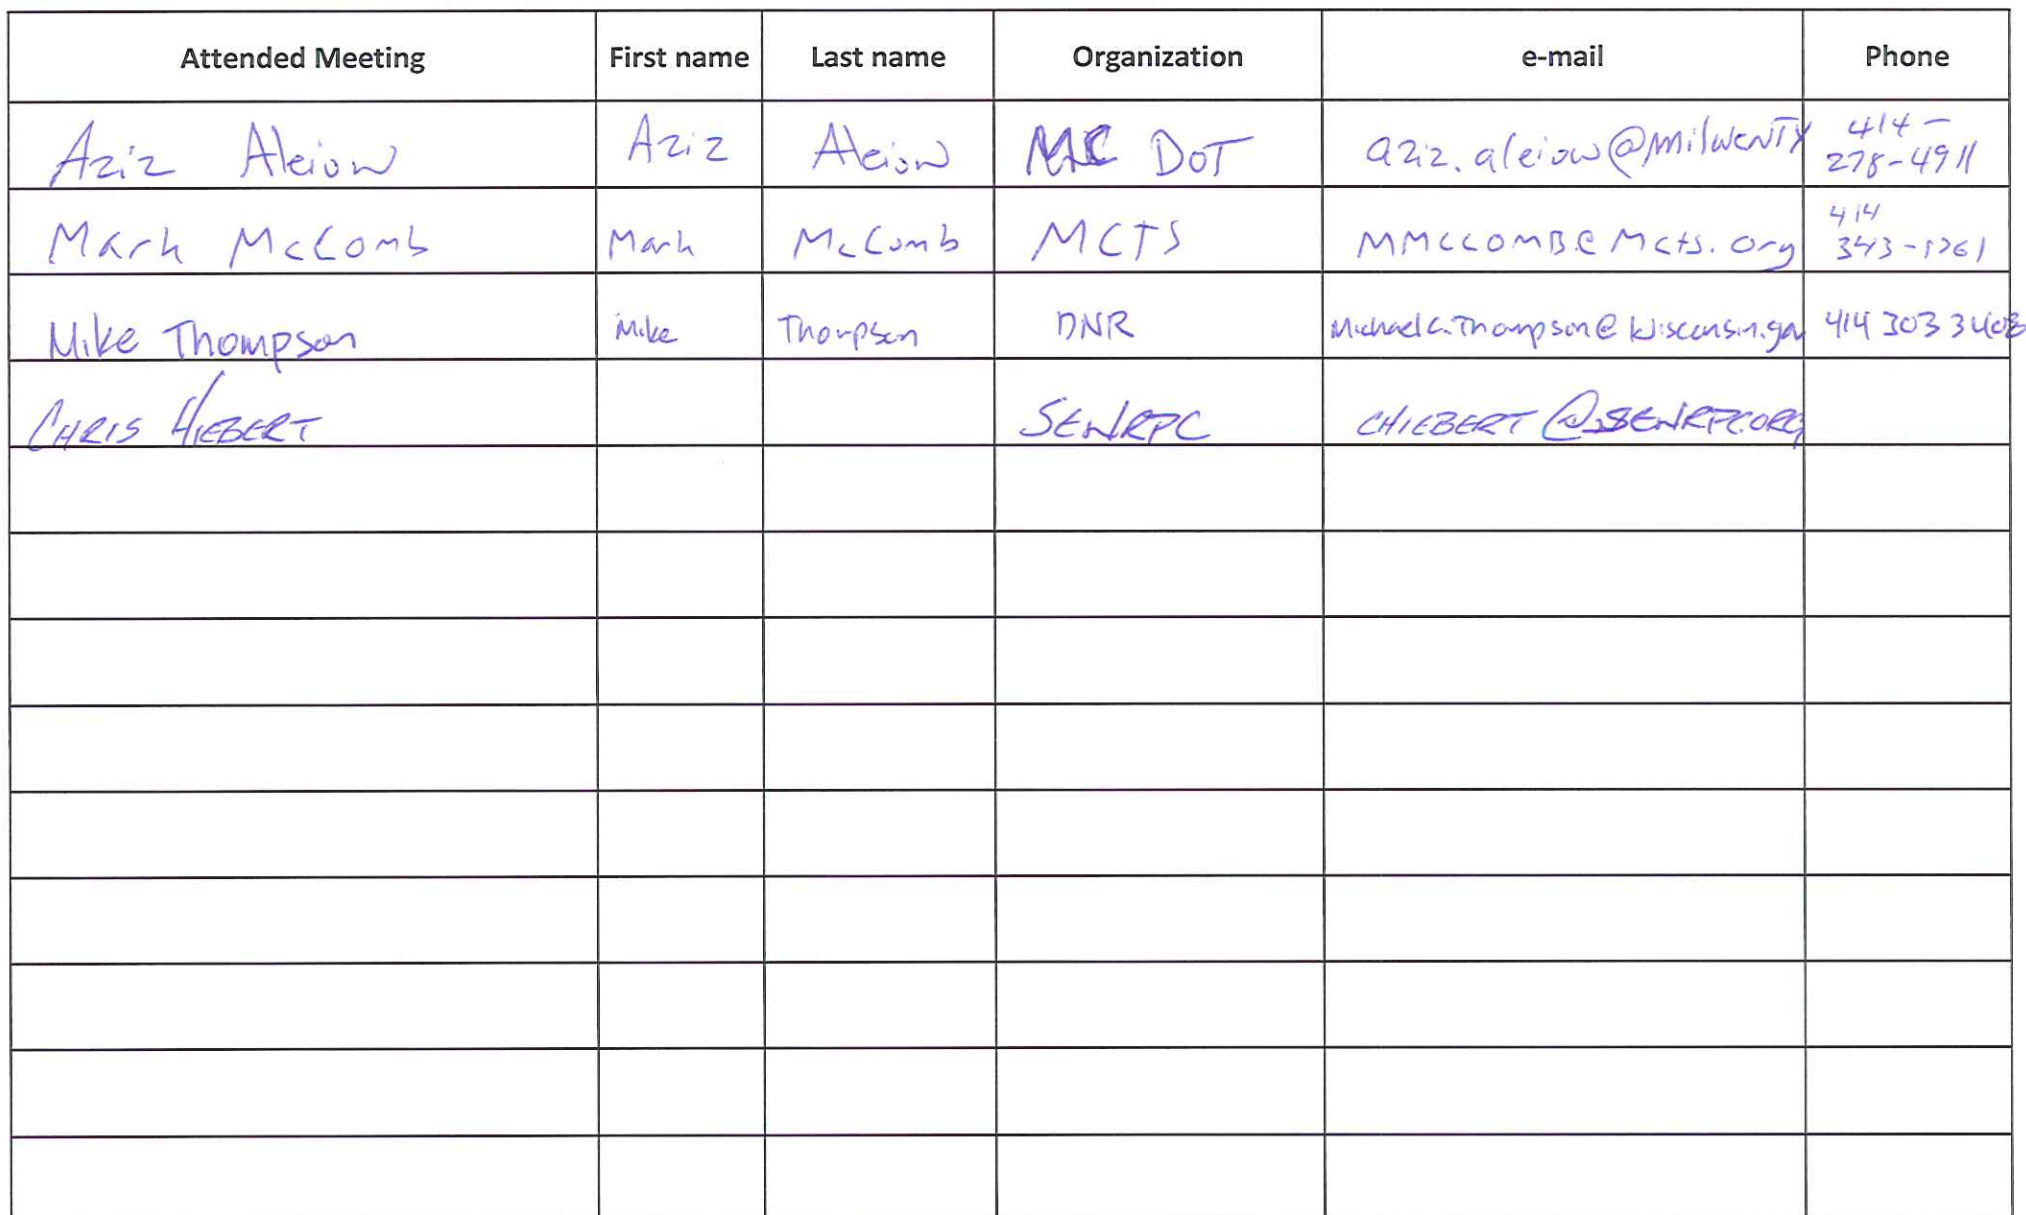 Attended Meeting First name Last name Organization e-mail Phone
Aziz Aleiow Aziz Aleiow MC DOT aziz.aleiow@milwcnty 414-
278-4911
Mark McComb Mark McComb MCTS MMCCOMB@Mcts.org 414
343-1761
Mike Thompson Mike Thompson DNR Michaelc.Thompson@Wisconsin.gov 414 303 3408
CHRIS HIEBERT SEWRPC CHIEBERT@SEWRPC.ORG